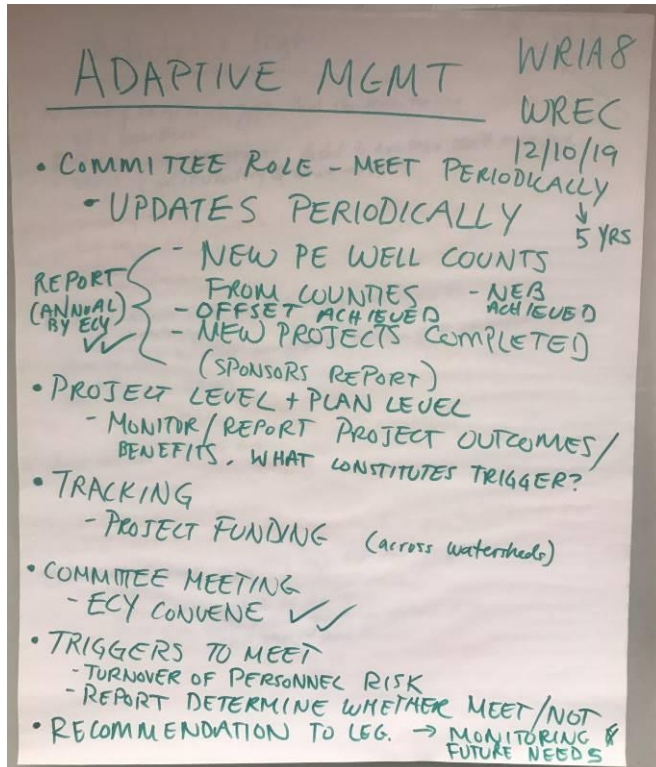 ADAPTIVE MGMT
WRIA8
WREC
12/10/19
• COMMITTEE ROLE - MEET PERIODICALLY
↓
5 YRS
• UPDATES PERIODICALLY
REPORT
(ANNUAL)
BY ECY
✓✓
- NEW PE WELL COUNTS
FROM COUNTIES
- NEB
ACHIEVED
- OFFSET ACHIEVED
- NEW PROJECTS COMPLETED
(SPONSORS REPORT)
• PROJECT LEVEL + PLAN LEVEL
- MONITOR/REPORT PROJECT OUTCOMES/
BENEFITS. WHAT CONSTITUTES TRIGGER?
• TRACKING
- PROJECT FUNDING (across watersheds)
• COMMITTEE MEETING
- ECY CONVENE ✓✓
• TRIGGERS TO MEET
- TURNOVER OF PERSONNEL RISK
- REPORT DETERMINE WHETHER MEET/NOT
• RECOMMENDATION TO LEG. → MONITORING &
FUTURE NEEDS